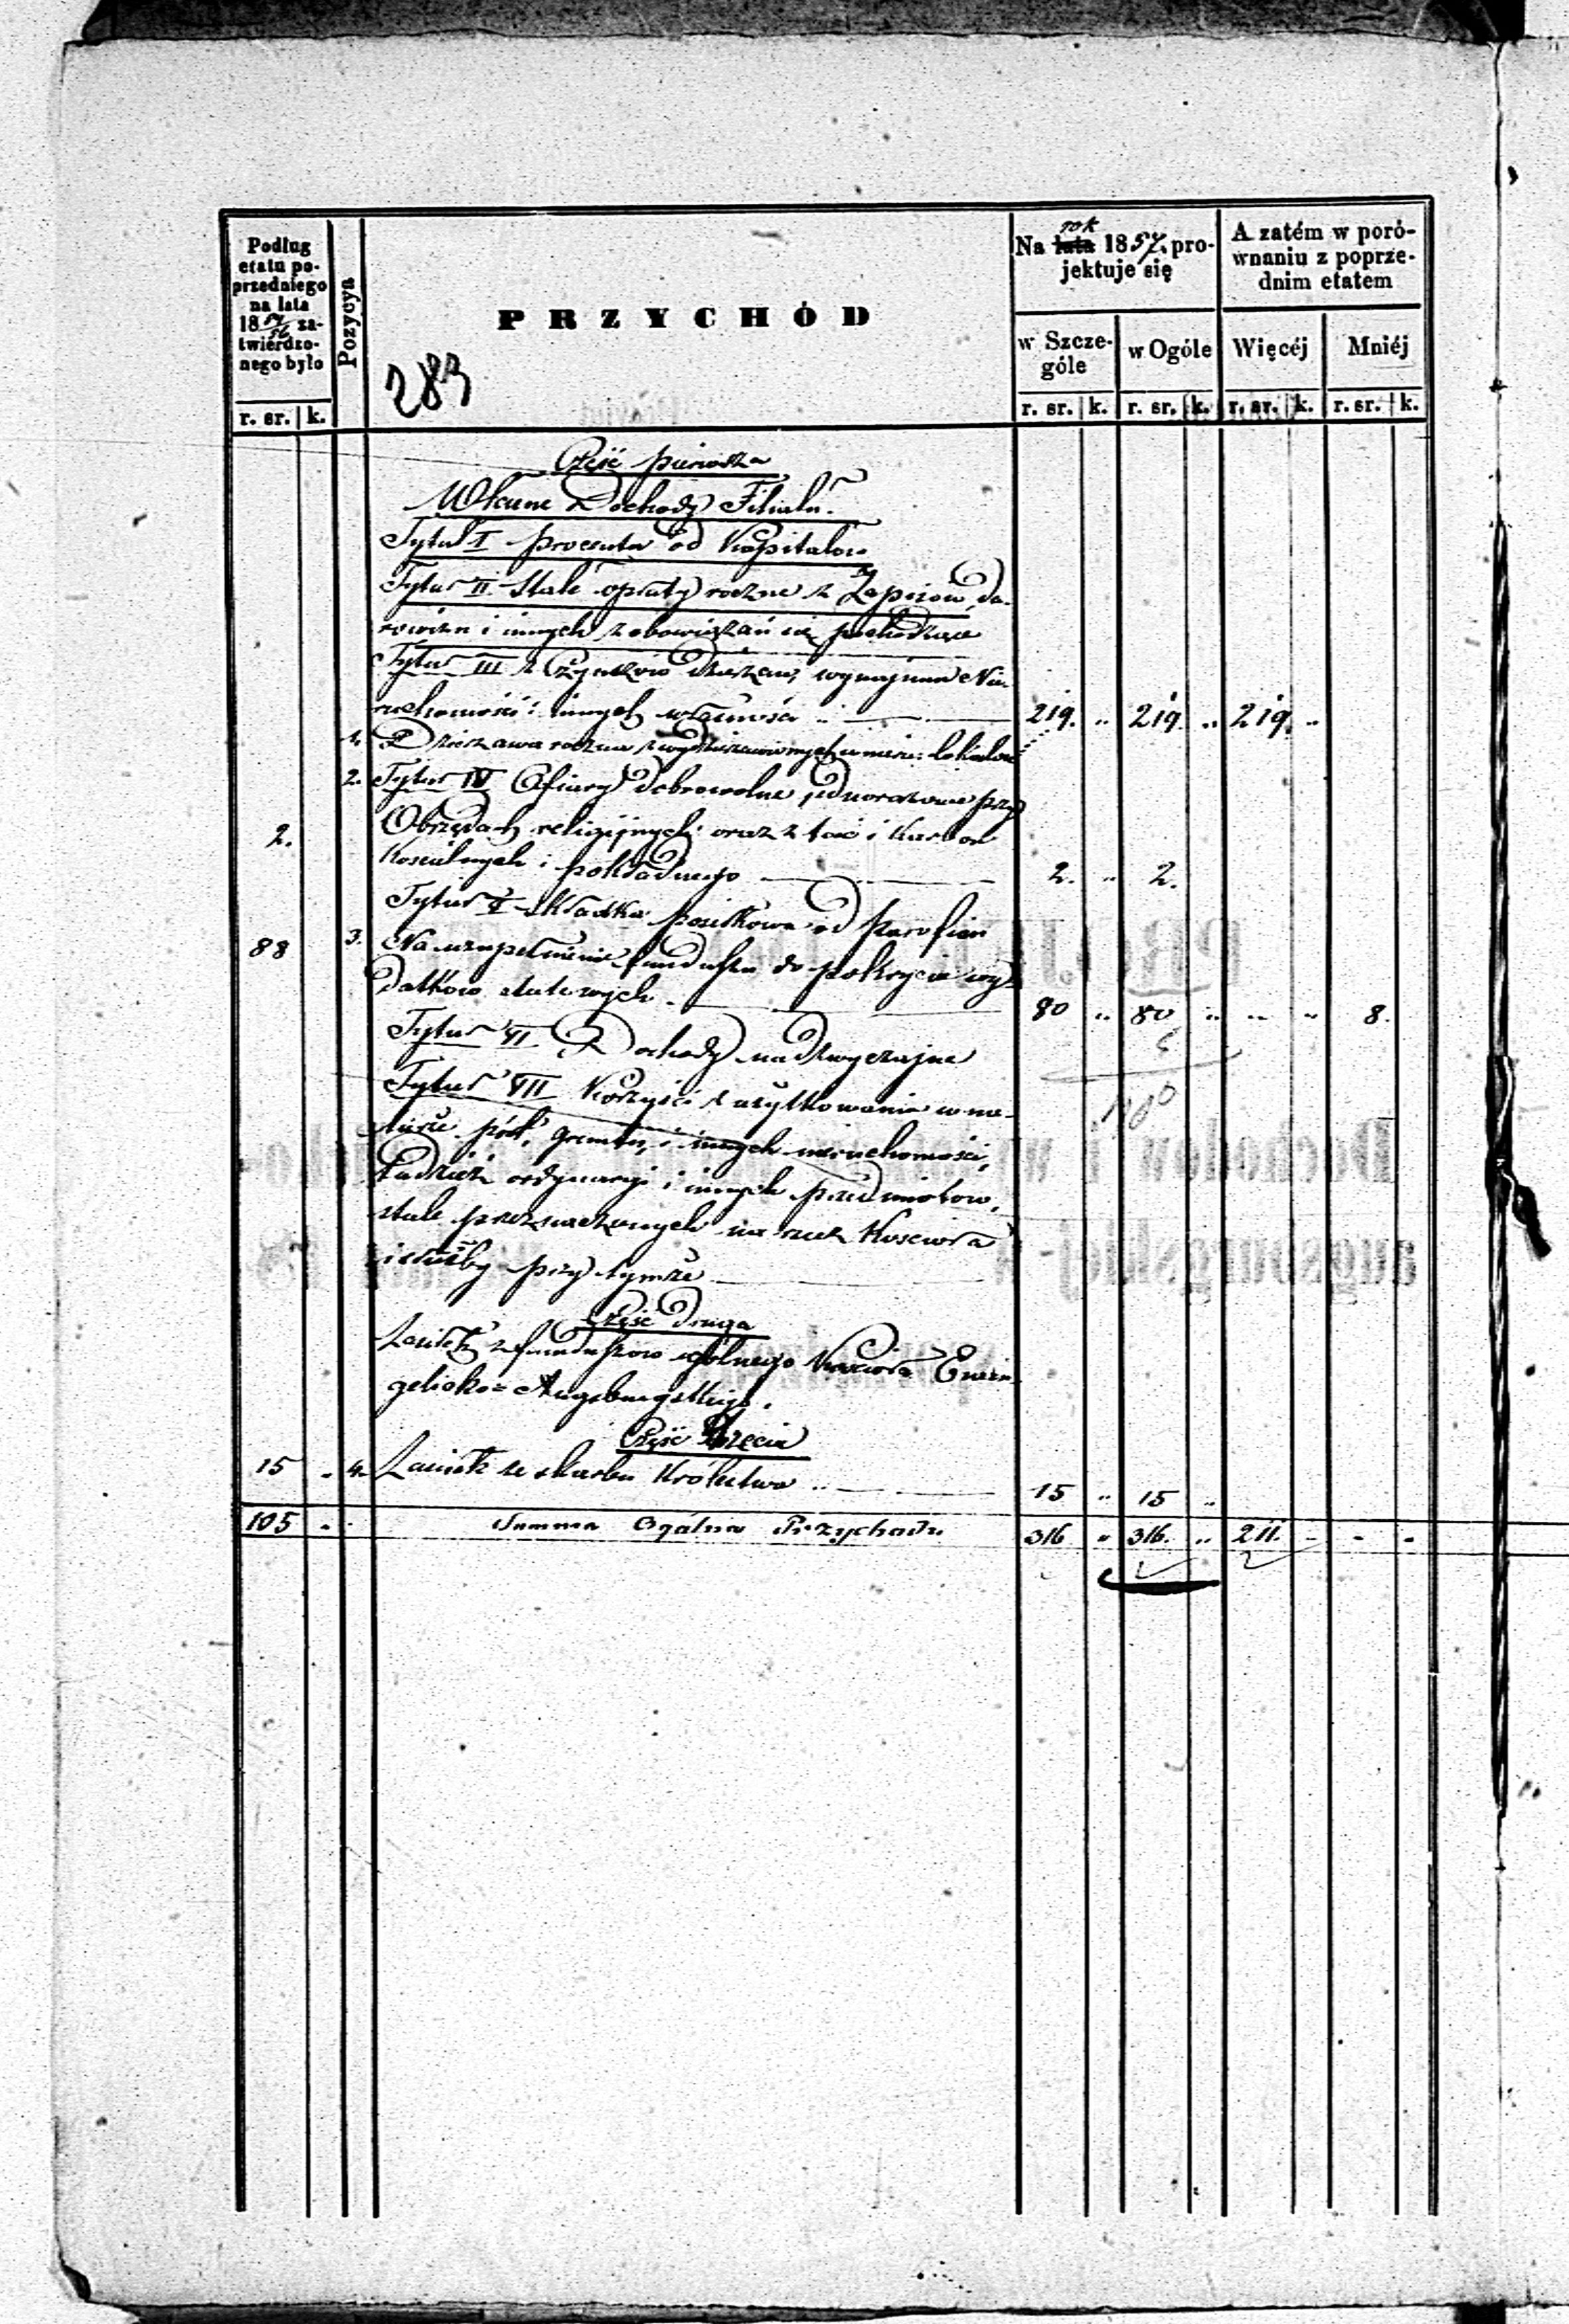 Podług
etatu po-
przedniego
na lata
18 54/56 za-
twierdzo-
nego było
Pozycya
PRZYCHÓD
283
rok
Na lata 1857. pro-
jektuje się
A zatém w poró-
wnaniu z poprze-
dnim etatem
w Szcze-
góle
w Ogóle
Więcéj
Mniéj
r. sr. k. r. sr. k. r. sr. k. r. sr. k. r. sr. k.
Część pierwsza
Własne Dochody Filiału.
Tytuł I procenta od Kapitałów
Tytuł II Stałe opłaty roczne z Zapisów, da-
rowizn i innych zobowiązań się pochodzące
Tytuł III z Czynszów Dzierżaw, wynajmu Nie-
ruchomości i innych własności .. 219. .. 219. .. 219. ..
1. Dzierżawa roczna z lokalów
2. Tytuł IV Ofiary dobrowolne jednorazowe przy
2. Obrzędach religijnych oraz z tac i Karbon
Kościelnych i pokładnego 2. .. 2.
Tytuł V składka posiłkowa od parafian
88 3. Na uzupełnienie funduszu do pokrycia wy-
datków etatowych. 80 .. 80 .. .. .. 8.
Tytuł VI Dochody nadzwyczajne
100
Tytuł VII Korzyści z użytkowania w na-
turze pól, gruntów, i innych nieruchomości,
tudzież ordynaryi i innych przedmiotów,
stale przeznaczonych na rzecz Kościoła
i służby przy tymże
Część Druga
Zasiłek z funduszów ogólnego Kościoła Ewan-
gelicko=Augsburgskiego.
Część Trzecia
15 .. 4. Zasiłek ze skarbu Królestwa .. 15 .. 15 ..
105 .. Summa Ogólna Przychodu 316 .. 316. .. 211. - - -